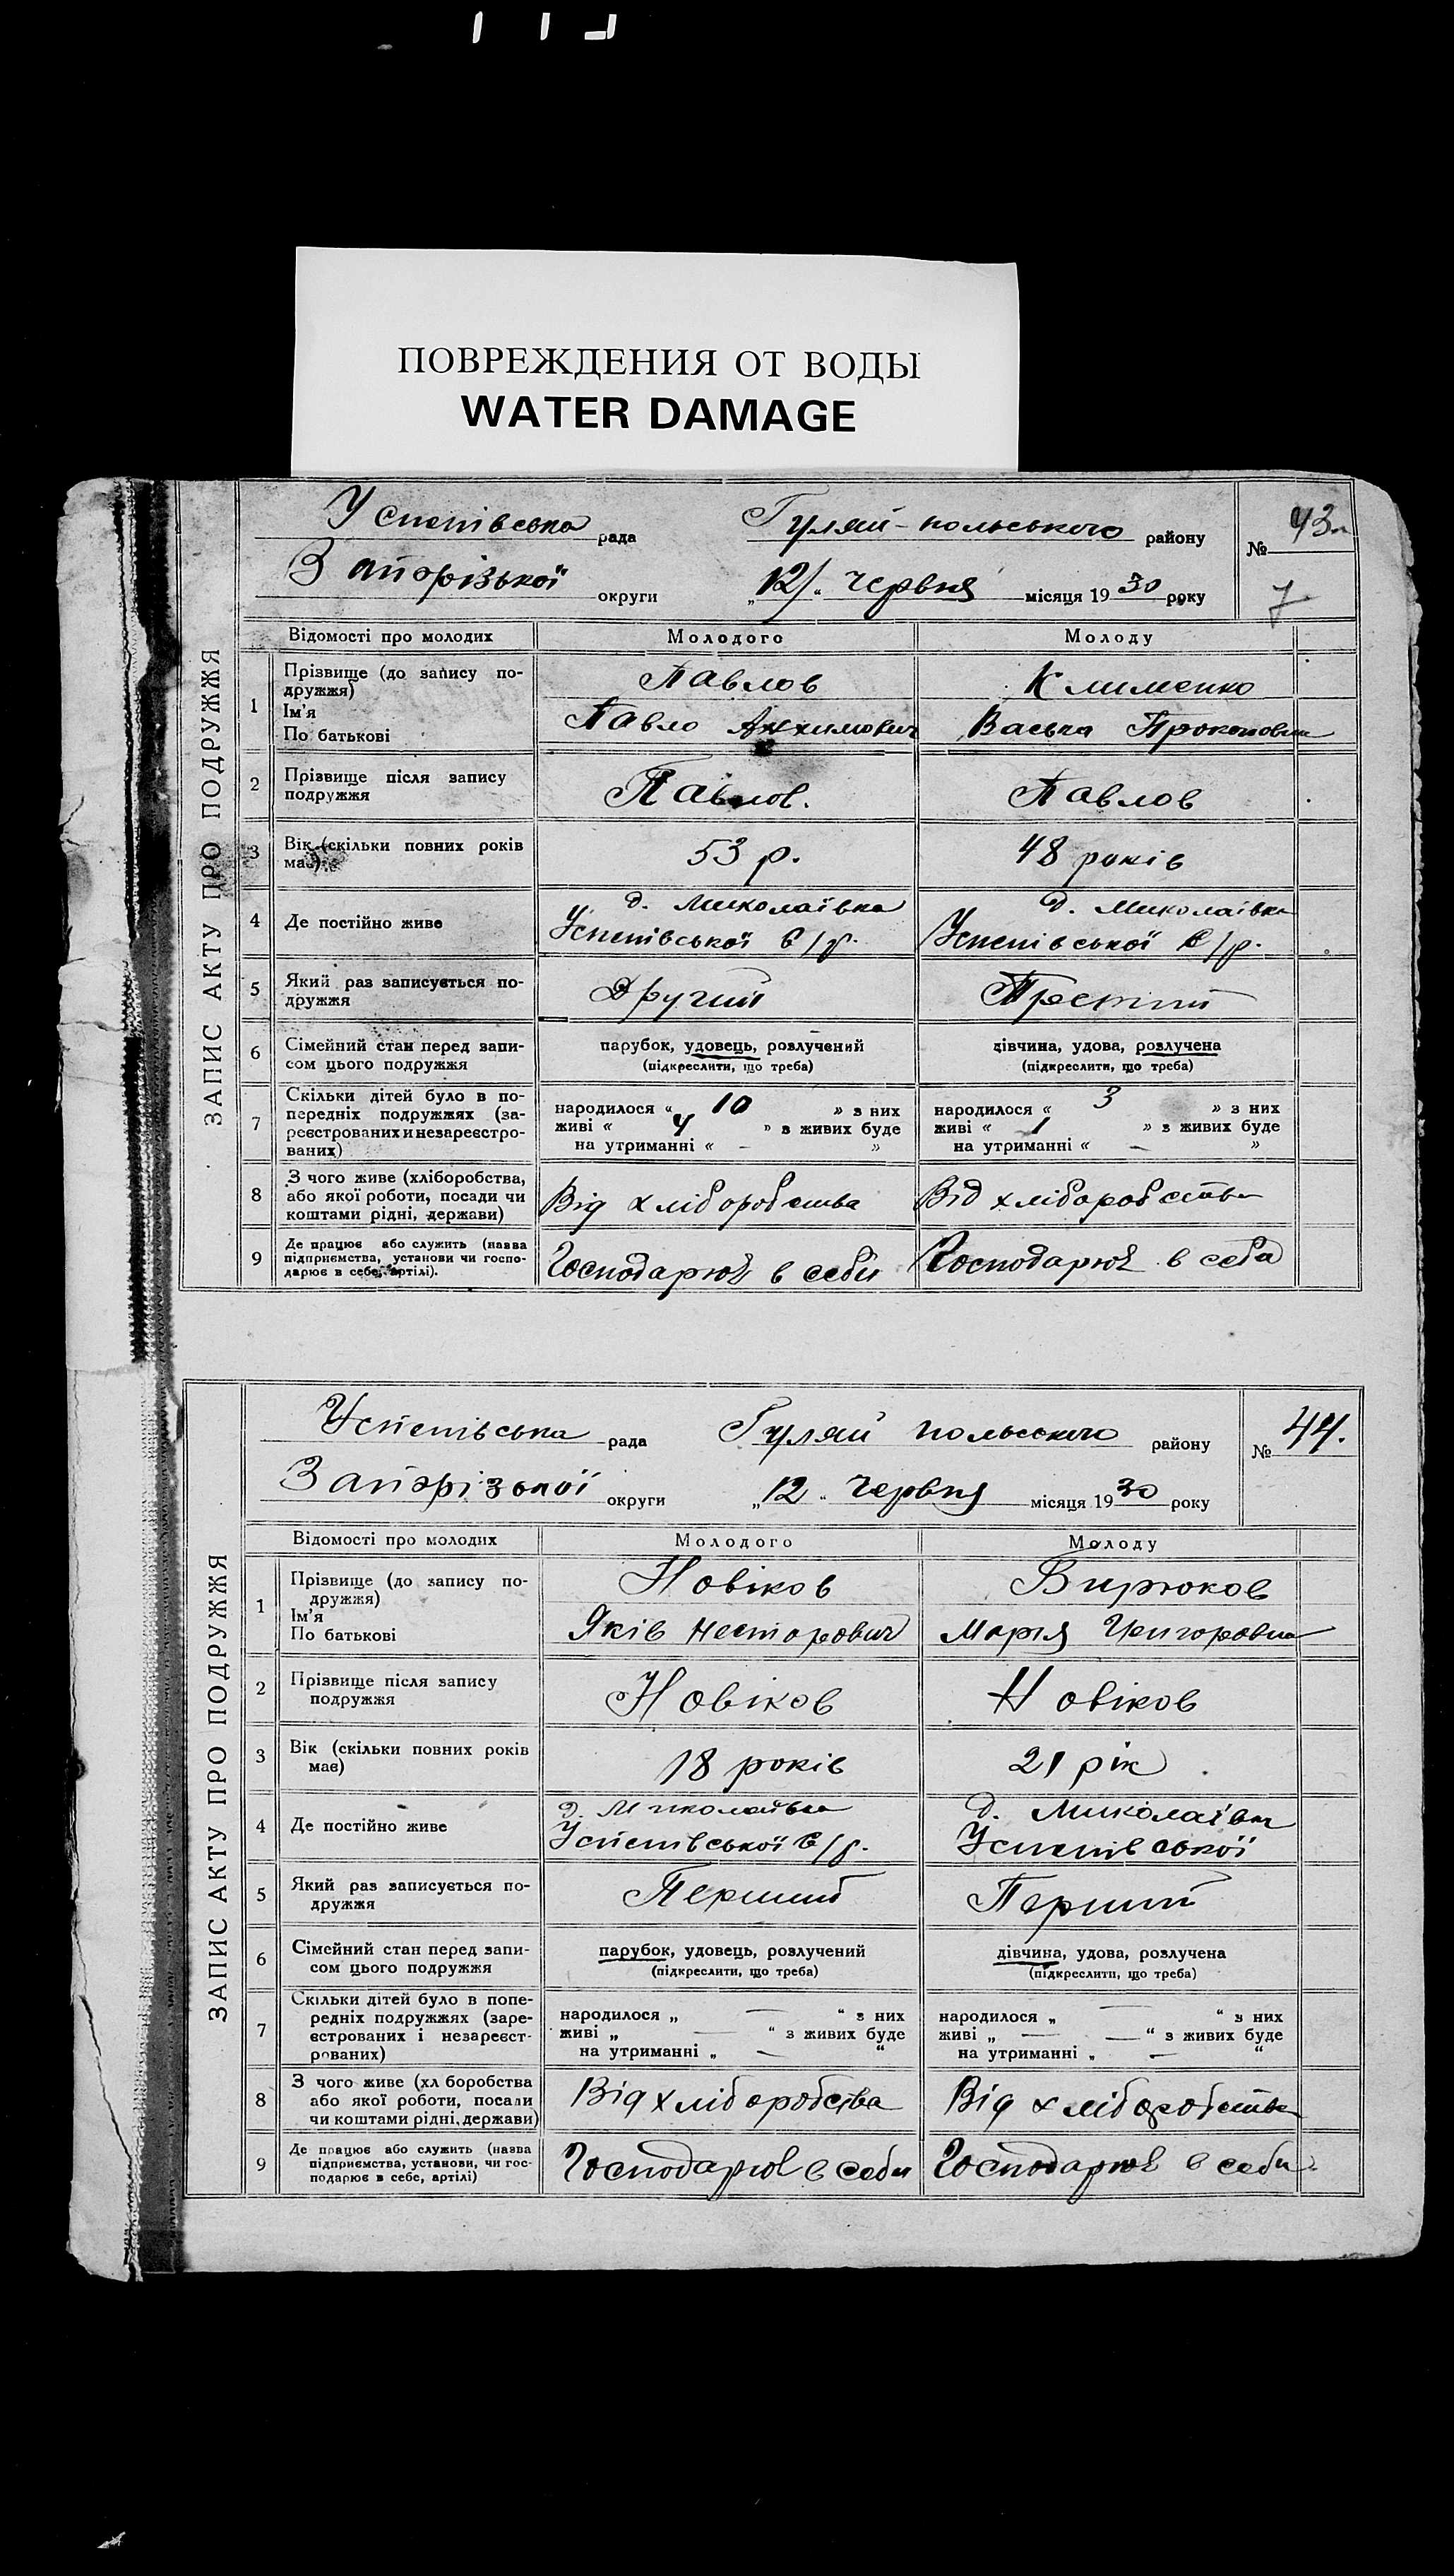 ПОВРЕЖДЕНИЯ ОТ ВОДЫ
WATER DAMAGE
ЗАПИС АКТУ ПРО ПОДРУЖЖЯ
Успенівська рада Гуляй-польського району № 43
Запорізької округи „12/“ червня місяця 1930 року 7
Відомості про молодих Молодого Молоду
1 Прізвище (до запису по-
дружжя) Павлов Клименко
Ім'я
По батькові Павло Васька
2 Прізвище після запису
подружжя Павлов. Павлов
3 Вік (скільки повних років
має) 53 р. 48 років
4 Де постійно живе д. Миколаївка д. Миколаївка
Успенівської с/р. Успенівської с/р.
5 Який раз записується по-
дружжя Другий Третий
6 Сімейний стан перед запи-
сом цього подружжя парубок, удовець, розлучений дівчина, удова, розлучена
(підкреслити, що треба) (підкреслити, що треба)
7 Скільки дітей було в по-
передніх подружжях (за-
реєстрованих и незареєстро-
ваних) народилося « 10 » з них народилося « 3 » з них
живі « 4 » з живих буде живі « 1 » з живих буде
на утриманні « – » на утриманні « – »
8 З чого живе (хліборобства,
або якої роботи, посади чи
коштами рідні, держави) Від хліборобства Від хліборобства
9 Де працює або служить (назва
підприємства, установи чи госпо-
дарює в себе, артілі). Господарює в себе Господарює в себе
ЗАПИС АКТУ ПРО ПОДРУЖЖЯ
Успенівська рада Гуляй польського району № 44.
Запорізької округи „12“ червня місяця 1930 року
Відомості про молодих Молодого Молоду
1 Прізвище (до запису по-
дружжя) Новіков Бирюков
Ім'я
По батькові Яків Несторович Марія Григоровна
2 Прізвище після запису
подружжя Новіков Новіков
3 Вік (скільки повних років
має) 18 років 21 рік
4 Де постійно живе д. Миколаївка д. Миколаївка
Успенівської с/р. Успенівської
5 Який раз записується по-
дружжя Перший Перший
6 Сімейний стан перед запи-
сом цього подружжя парубок, удовець, розлучений дівчина, удова, розлучена
(підкреслити, що треба) (підкреслити, що треба)
7 Скільки дітей було в попе-
редніх подружжях (заре-
єстрованих і незареєст-
рованих) народилося „ — “ з них народилося „ — “ з них
живі „ — “ з живих буде живі „ — “ з живих буде
на утриманні „ — “ на утриманні „ — “
8 З чого живе (хл боробства
або якої роботи, посади
чи коштами рідні, держави) Від хліборобства Від хліборобства
9 Де працює або служить (назва
підприємства, установи, чи гос-
подарює в себе, артілі) Господарює в себе Господарює в себе